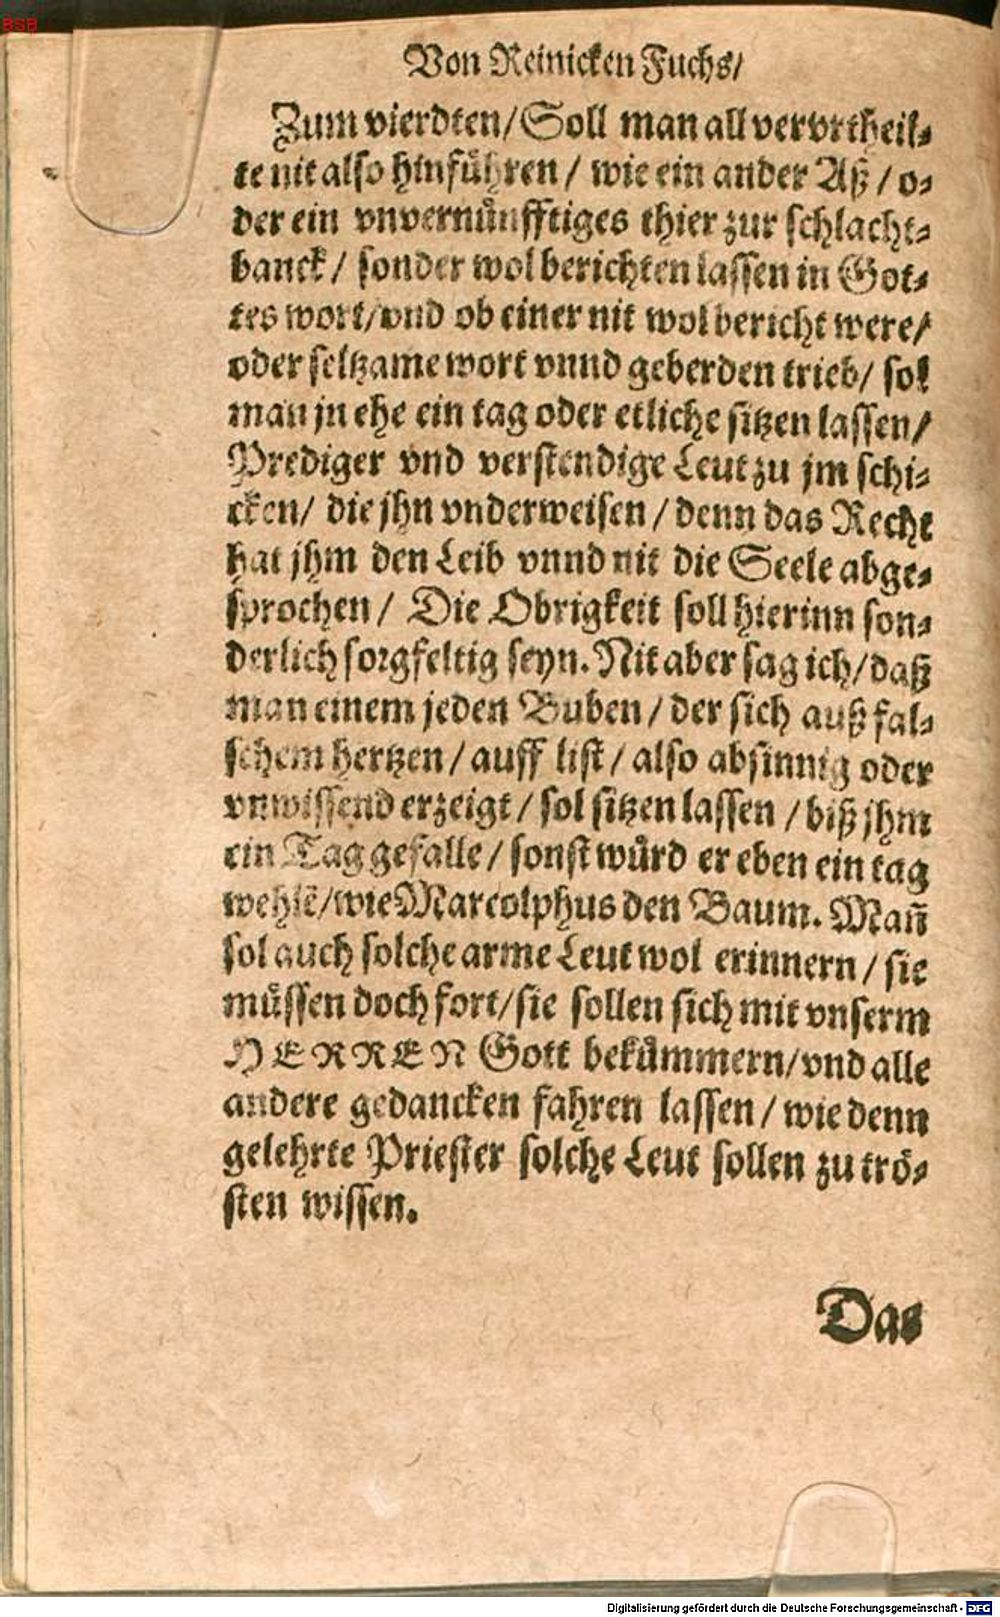 BSB
Von Reinicken Fuchs/
Zum vierdten/Soll man all vervrtheil-
te nit also hinführen / wie ein ander Aß / o-
der ein vnvernünfftiges thier zur schlacht-
banck / sonder wol berichten lassen in Got-
tes wort/vnd ob einer nit wol bericht were/
oder seltzame wort vnnd geberden trieb/ sol
man jn ehe ein tag oder etliche sitzen lassen/
Prediger vnd verstendige Leut zu jm schi-
cken/ die jhn vnderweisen / denn das Recht
hat jhm den Leib vnnd nit die Seele abge-
sprochen / Die Obrigkeit soll hierinn son-
derlich sorgfeltig seyn. Nit aber sag ich/daß
man einem jeden Buben / der sich auß fal-
schem hertzen / auff list / also absinnig oder
vnwissend erzeigt / sol sitzen lassen / biß jhm
ein Tag gefalle / sonst würd er eben ein tag
wehlē/wie Marcolphus den Baum. Mañ
sol auch solche arme Leut wol erinnern / sie
müssen doch fort/sie sollen sich mit vnserm
HERREN Gott bekümmern/vnd alle
andere gedancken fahren lassen / wie denn
gelehrte Priester solche Leut sollen zu trö-
sten wissen.
Das
Digitalisierung gefördert durch die Deutsche Forschungsgemeinschaft - DFG